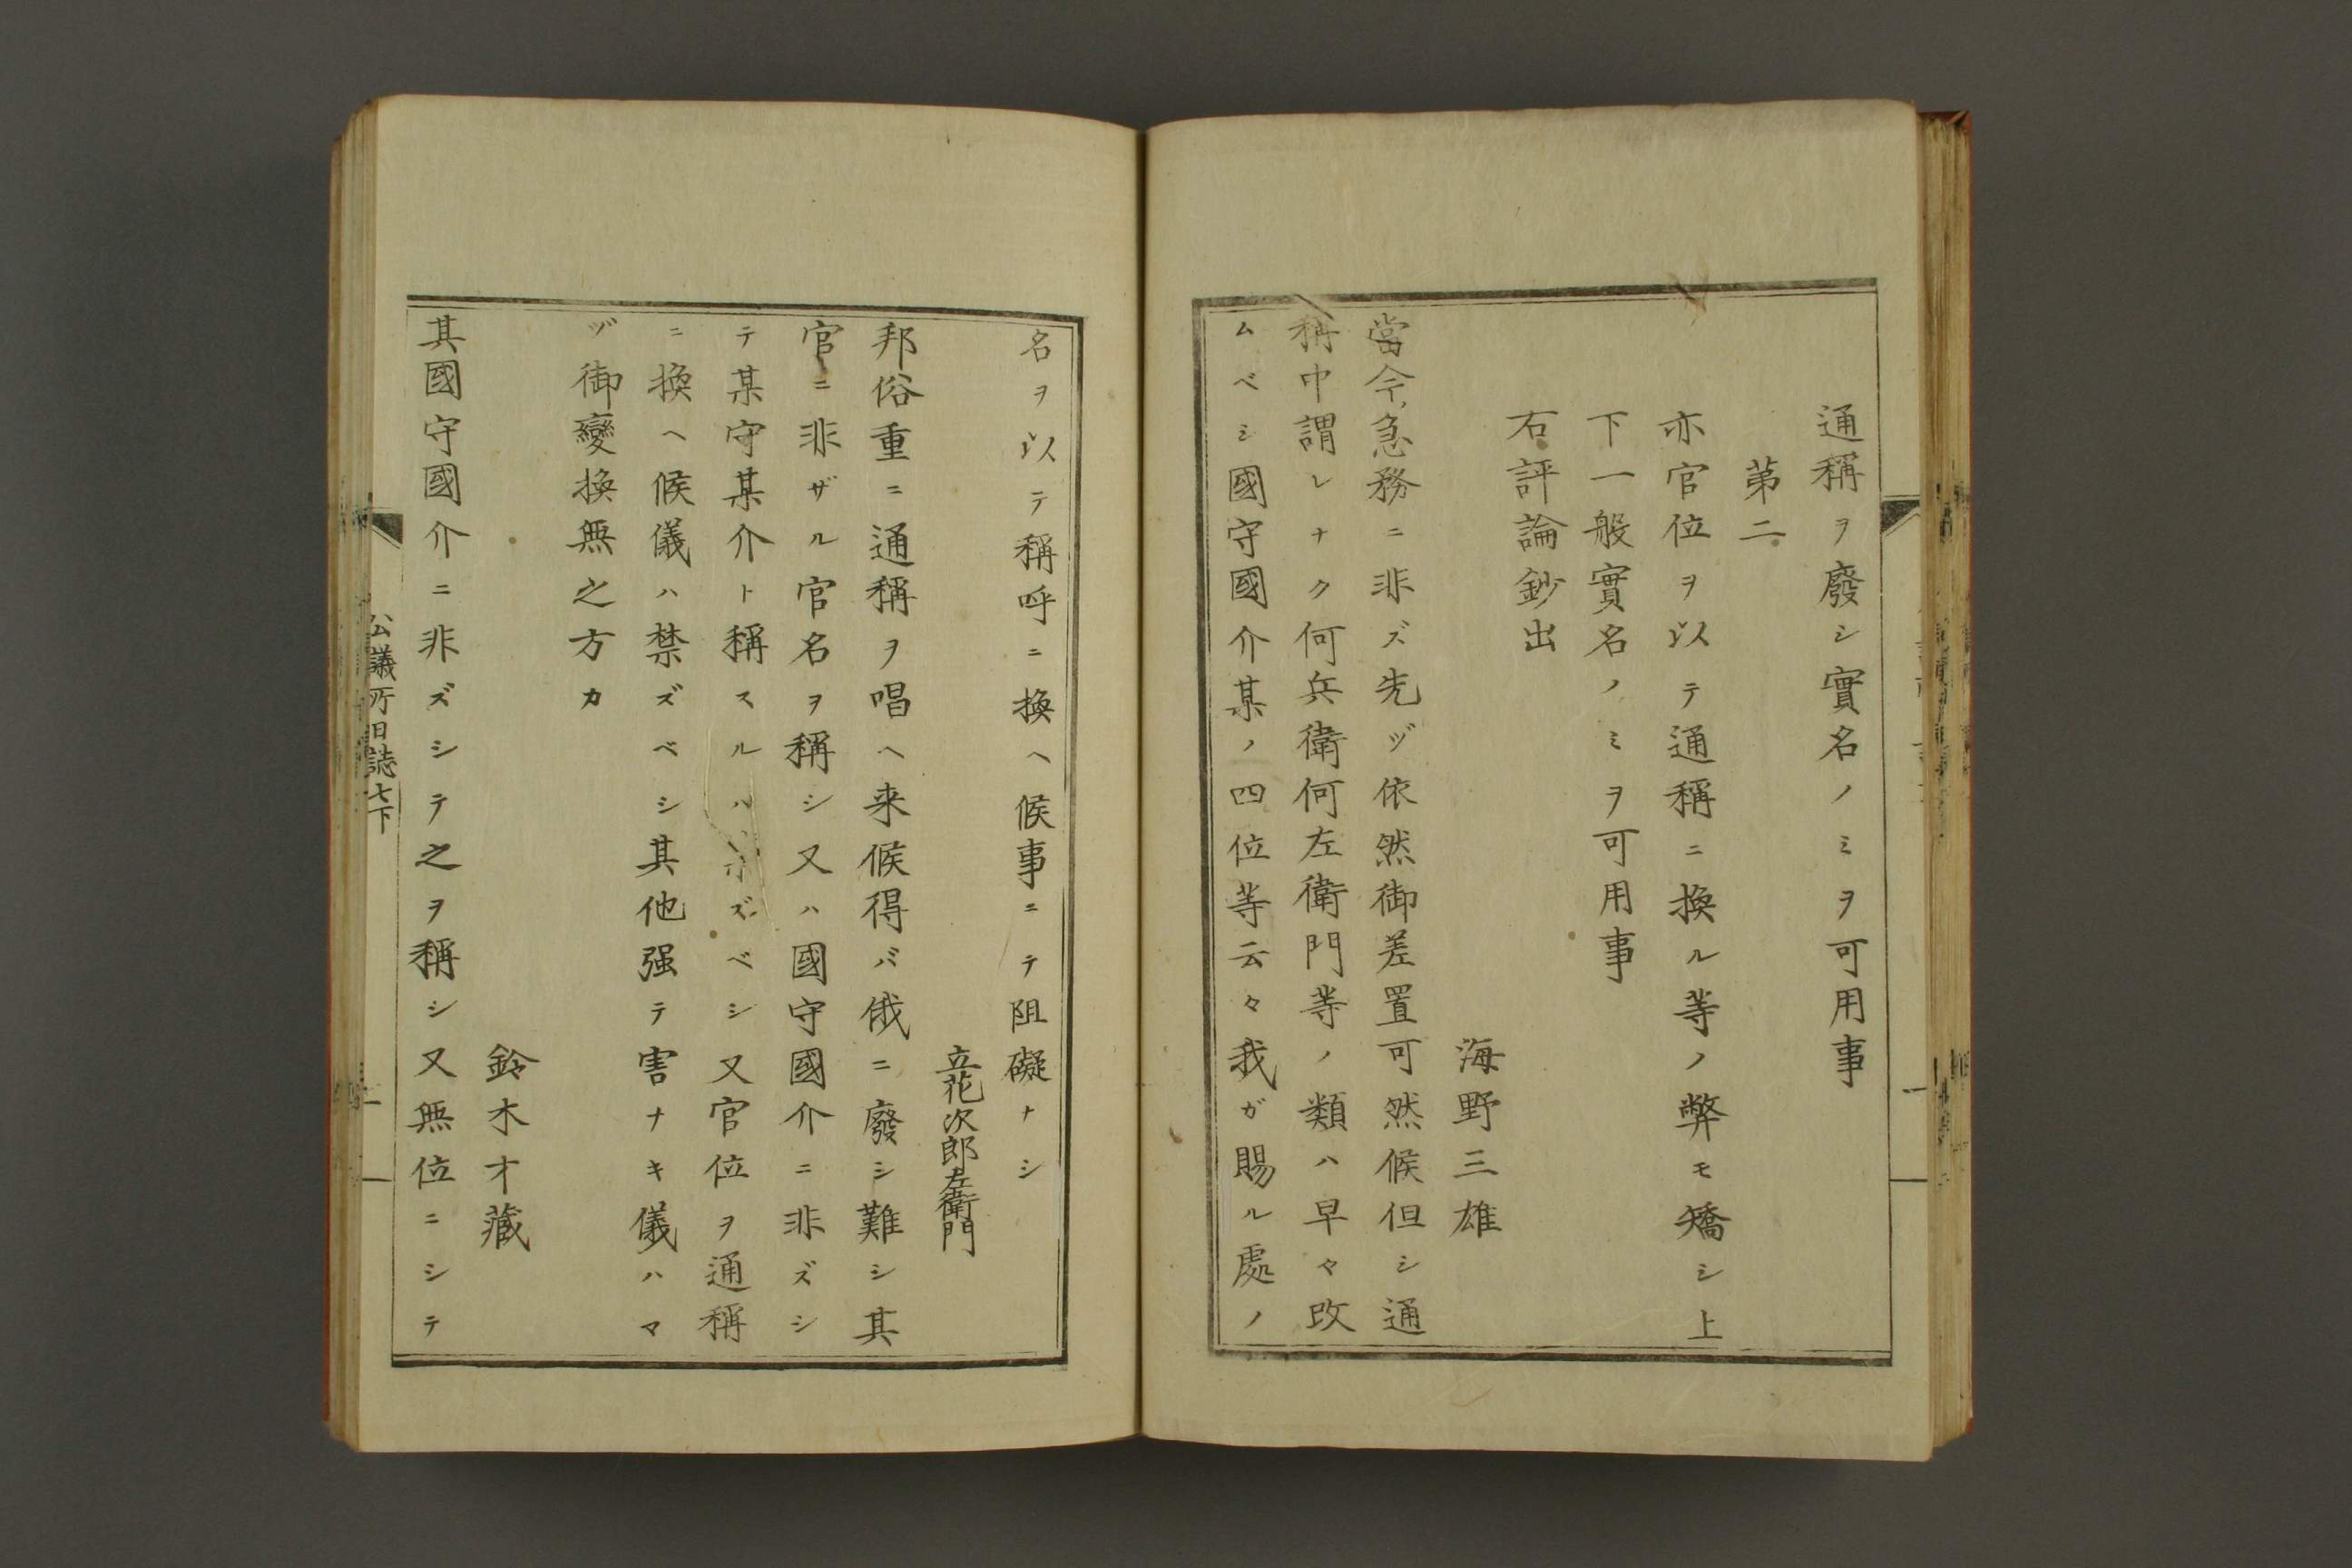 通稱ヲ廢シ實名ノミヲ可用事
第二
亦官位ヲ以テ通稱ニ換ル等ノ弊モ矯シ上
下一般實名ノミヲ可用事
右評論鈔出
海野三雄
當今ノ急務ニ非ズ先ヅ依然御差置可然候但シ通
稱中謂レナク何兵衛何左衛門等ノ類ハ早々改
ムベシ國守國介某ノ四位等云々我ガ賜ル處ノ
名ヲ以テ稱呼ニ換ヘ候事ニテ阻礙ナシ
立花次郎左衛門
邦俗重ニ通稱ヲ唱ヘ来候得バ俄ニ廢シ難シ其
官ニ非ザル官名ヲ稱シ又ハ國守國介ニ非ズシ
テ某守某介ト稱スルハ禁ズベシ又官位ヲ通稱
ニ換ヘ候儀ハ禁ズベシ其他强テ害ナキ儀ハマ
ヅ御變換無之方カ
鈴木才藏
其國守國介ニ非ズシテ之ヲ稱シ又無位ニシテ
公議所日誌 七下